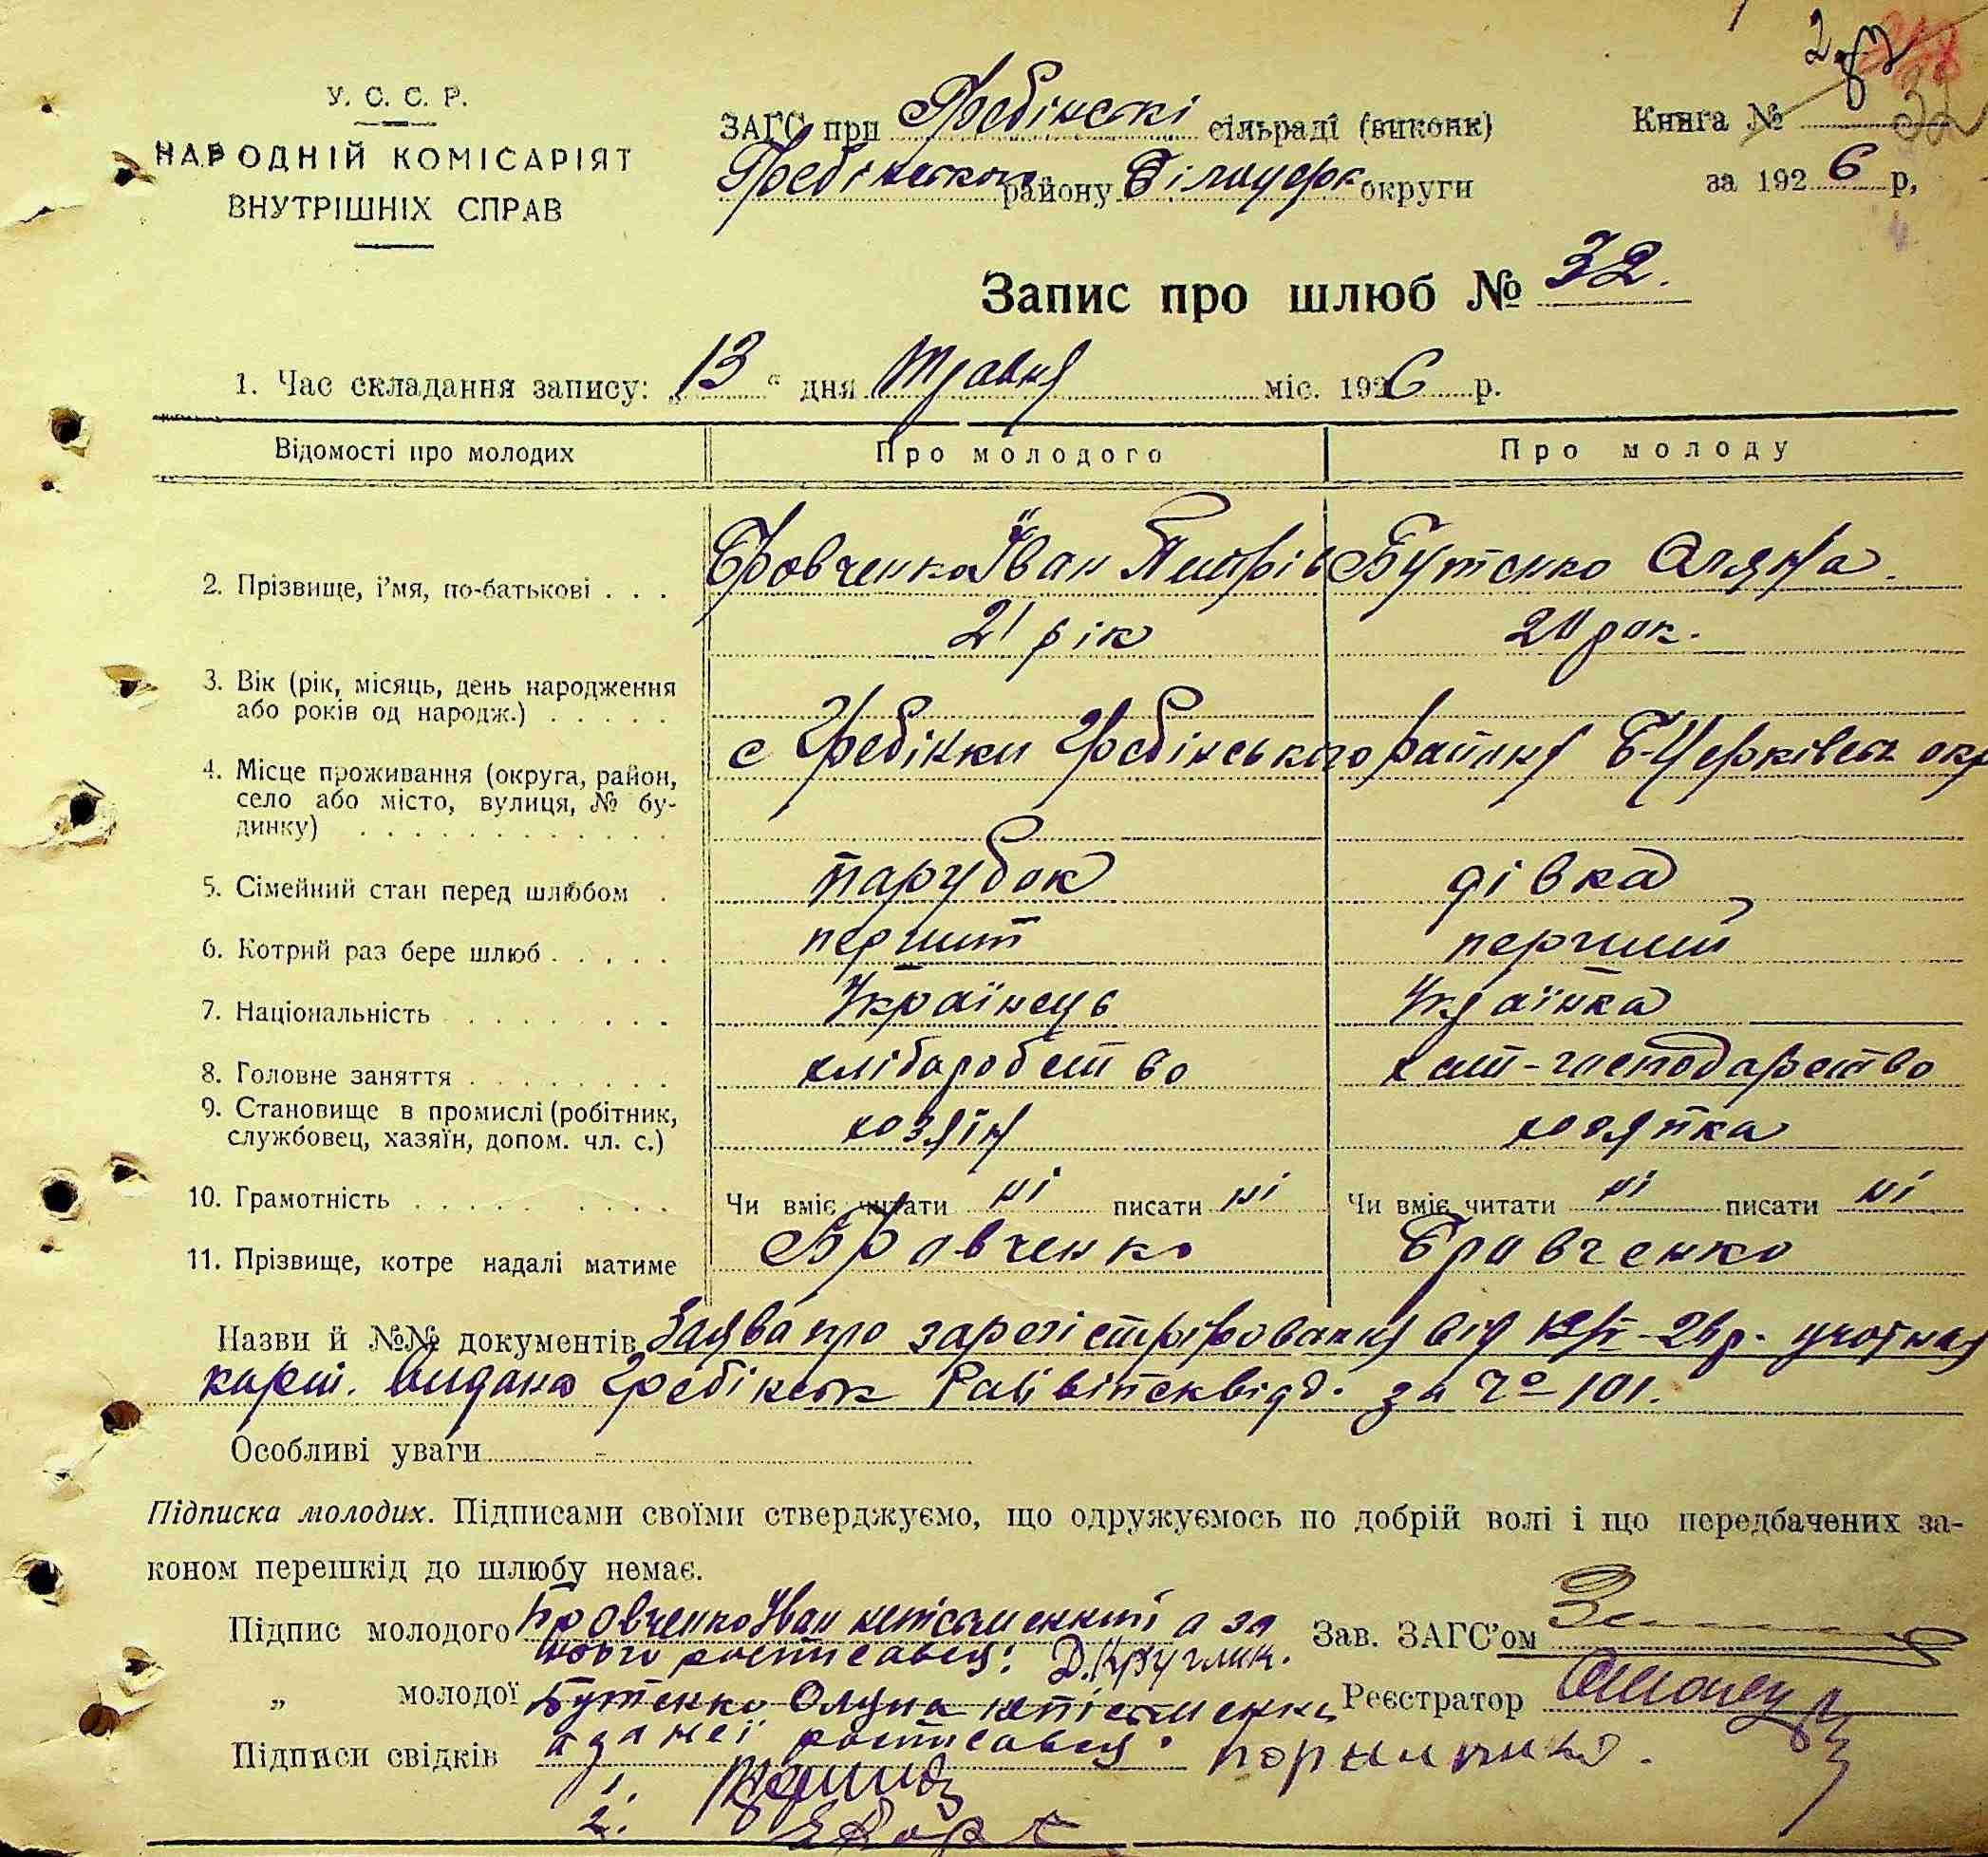 У. С. С. Р.
НАРОДНІЙ КОМІСАРІЯТ
ВНУТРІШНІХ СПРАВ
ЗАГС при Гребінскі сільраді (виконк)
Гребінського району Білоцерк округи
Книга №
за 1926 р,
Запис про шлюб № 32.
1. Час складання запису: „13“ дня Травня міс. 1926 р.
Відомості про молодих Про молодого Про молоду
2. Прізвище, і’мя, по-батькові . . . Бровченко Іван Бутенко Оляна.
21 рік 20 рок.
3. Вік (рік, місяць, день народження
або років од народж.) . . . . .
с Гребінки Гребінського району Б-Церківськ окр
4. Місце проживання (округа, район,
село або місто, вулиця, № бу-
динку) . . . . . . . . . . . .
5. Сімейний стан перед шлюбом . парубок дівка
6. Котрий раз бере шлюб . . . . . перший перший
7. Національність . . . . . . . . Українець Українка
8. Головне заняття . . . . . . . . хліборобство хат-господарство
9. Становище в промислі (робітник,
службовец, хазяїн, допом. чл. с.) хозяїн хозяйка
10. Грамотність . . . . . . . . . Чи вміє читати ні писати ні Чи вміє читати ні писати ні
11. Прізвище, котре надалі матиме Бровченко Бровченко
Назви й №№ документів Заява про від учотная
карт. видана Гребінськ за № 101.
Особливі уваги -
Підписка молодих. Підписами своїми стверджуємо, що одружуємось по добрій волі і що передбачених за-
коном перешкід до шлюбу немає.
Підпис молодого Бровченко Іван а за
Зав. ЗАГС’ом
нього росписавсь: Д. Круглик.
„ молодої Бутенко Оляна
Реєстратор
а за неї росписавсь.
Підписи свідків
1.
2.